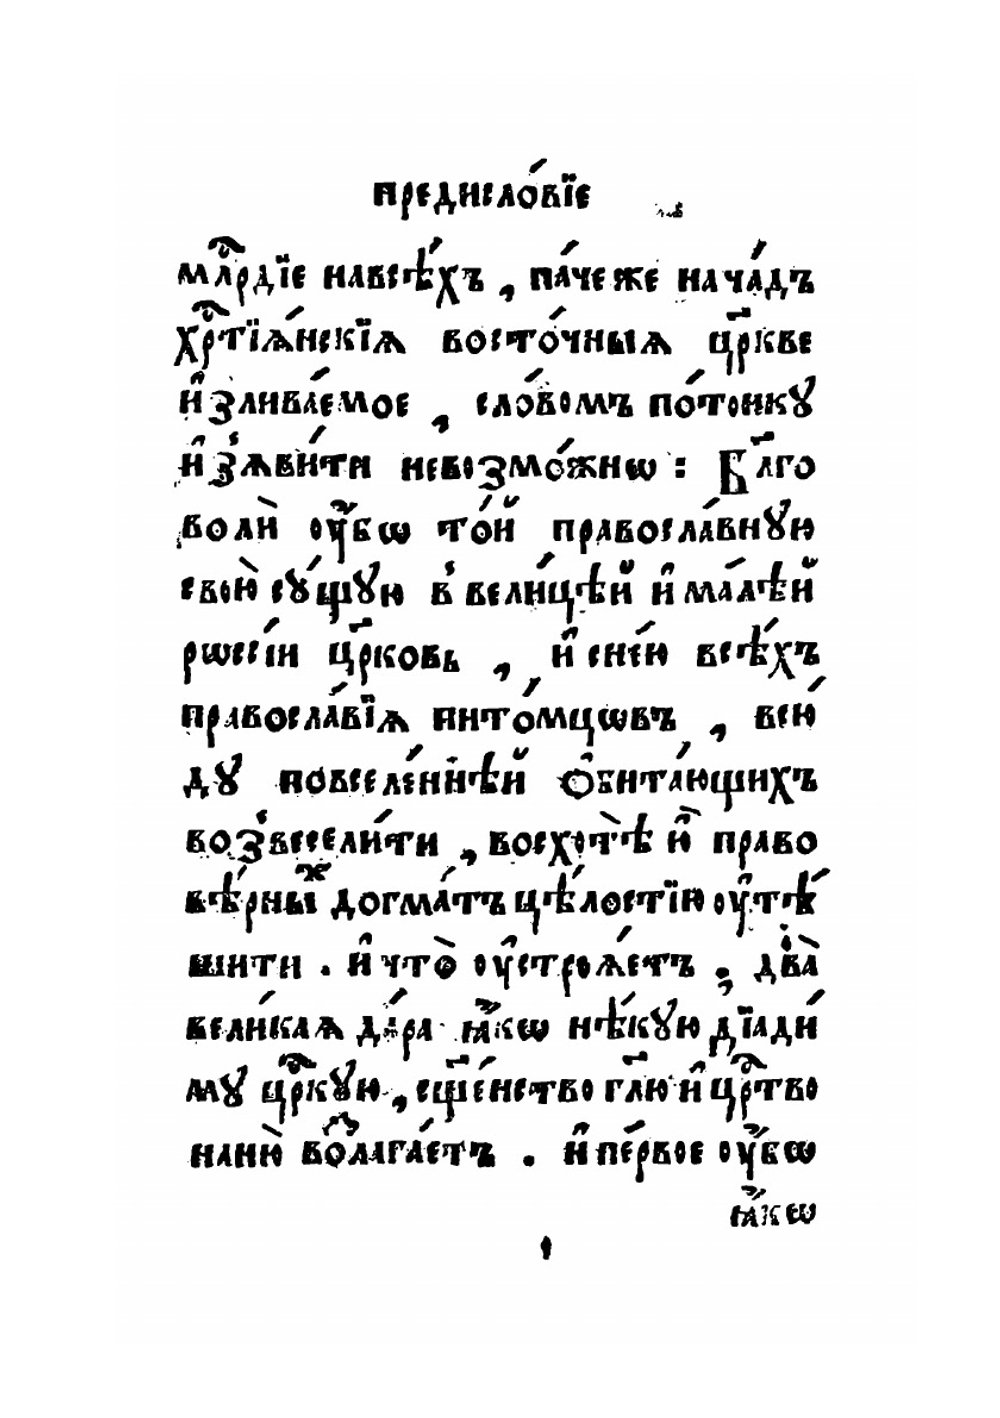 предисло́вїе
млⷭ҇рдїе навсѣ́хъ , па́че же нача́дъ
хрⷭ҇тїѧ́нскїѧ восто́чныѧ цр҃кве
и҆зливае́мое , сло́вомъ по́тонкꙋ
и҆з̾ѧви́ти невозмо́жнѡ : Бл҃го
воли̑ ᲂу҆́бѡ то́й правосла́внꙋю
свою̀ сꙋ́щꙋю в̾вели́цѣй и҆ ма́лѣй
рѡссі́и цр҃ковь , и҆ сне́ю всѣ́хъ
правосла́вїѧ пито́мцѡвъ , всю́
дꙋ повселе́ннѣй ѻ҆бита́ющихъ
воз̾весели́ти , восхотѣ̀ и҆ право
вѣ́рныⷯ догма́тъ цѣ́лостїю ᲂу҆тѣ́
шити . и҆ что̀ ᲂу҆строѧ́етъ , два̀
вели́каѧ да́ра ꙗ҆́кѡ нѣ́кꙋю дїади́
мꙋ цр҃кꙋю , сщ҃е́нство гл҃ю и҆ црⷭ҇тво
наню̀ воⷥлага́етъ . и҆ пе́рвое ᲂу҆́бѡ
ꙗ҆́кѡ